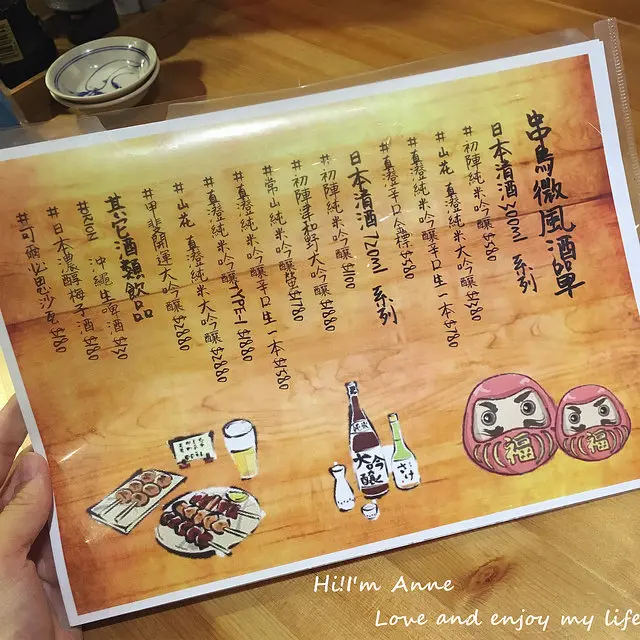 串鳥微風酒單
日本清酒300ml 系列
#初陣純米吟釀
#山花 真澄純米大吟釀$780
#真澄純米吟釀辛口生一本$780
#真澄辛口金標$580
日本清酒720ml 系列
#初陣純米吟釀$1100
#初陣津和野大吟釀$1880
#常山純米吟釀螢$1780
#真澄純米吟釀辛口生一本$1580
#真澄純米吟釀TYPE-1 $1880
#山花 真澄純米大吟釀$2880
#甲斐開運大吟釀$2880
其它酒類飲品
#ORION 沖繩生啤酒
#日本濃醇梅子酒
#可爾必思沙瓦
大吟釀
さけ
福
福
Hi!I'm Anne
Love and enjoy my life